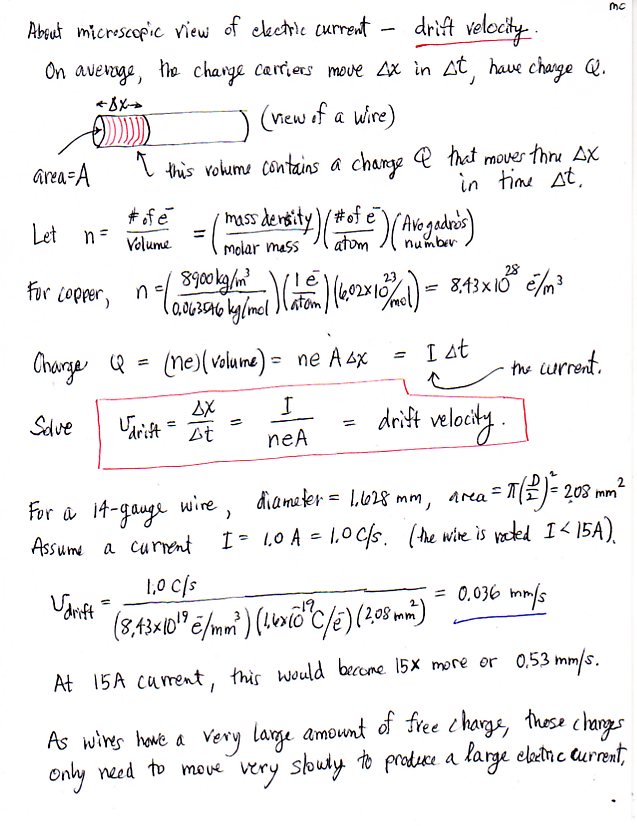 mc
About microscopic view of electric current – drift velocity.
On average, the charge carriers move Δx in Δt, have charge Q.
←Δx→
(view of a wire)
area=A
this volume contains a charge Q that moves thru Δx
in time Δt.
Let n = # of e⁻ / Volume = (mass density / molar mass) (# of e⁻ / atom) (Avogadro's number)
For copper, n = (8900 kg/m³ / 0.063546 kg/mol) (1 e⁻ / atom) (6.02×10²³/mol) = 8.43×10²⁸ e⁻/m³
Charge Q = (ne)(volume) = ne A Δx = I Δt
the current.
Solve v_drift = Δx/Δt = I/neA = drift velocity.
For a 14-gauge wire, diameter = 1.628 mm, area = π(D/2)² = 2.08 mm²
Assume a current I = 1.0 A = 1.0 C/s. (the wire is rated I < 15A).
v_drift = 1.0 C/s / (8.43×10¹⁹ e⁻/mm³)(1.6×10⁻¹⁹ C/e⁻)(2.08 mm²) = 0.036 mm/s
At 15A current, this would become 15x more or 0.53 mm/s.
As wires have a very large amount of free charge, those charges
only need to move very slowly to produce a large electric current.